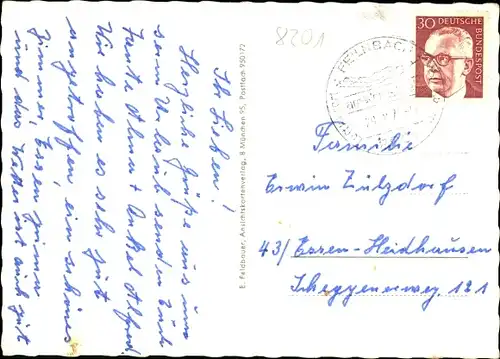 8201
30 DEUTSCHE
BUNDESPOST
FEILNBACH
Ihr Lieben!
Herzliche Grüße aus uns
serm Urlaub senden Euch
Tante Anna + Onkel Alfred.
Wir haben es sehr gut
angetroffen, ein schönes
Zimmer, Essen prima
und das Wetter ist auch gut
E. Feldbauer, Ansichtskartenverlag, 8 München 95, Postfach 950172
Familie
Erwin Zülzdorf
43/Essen-Heidhausen
Scheppenerweg 121